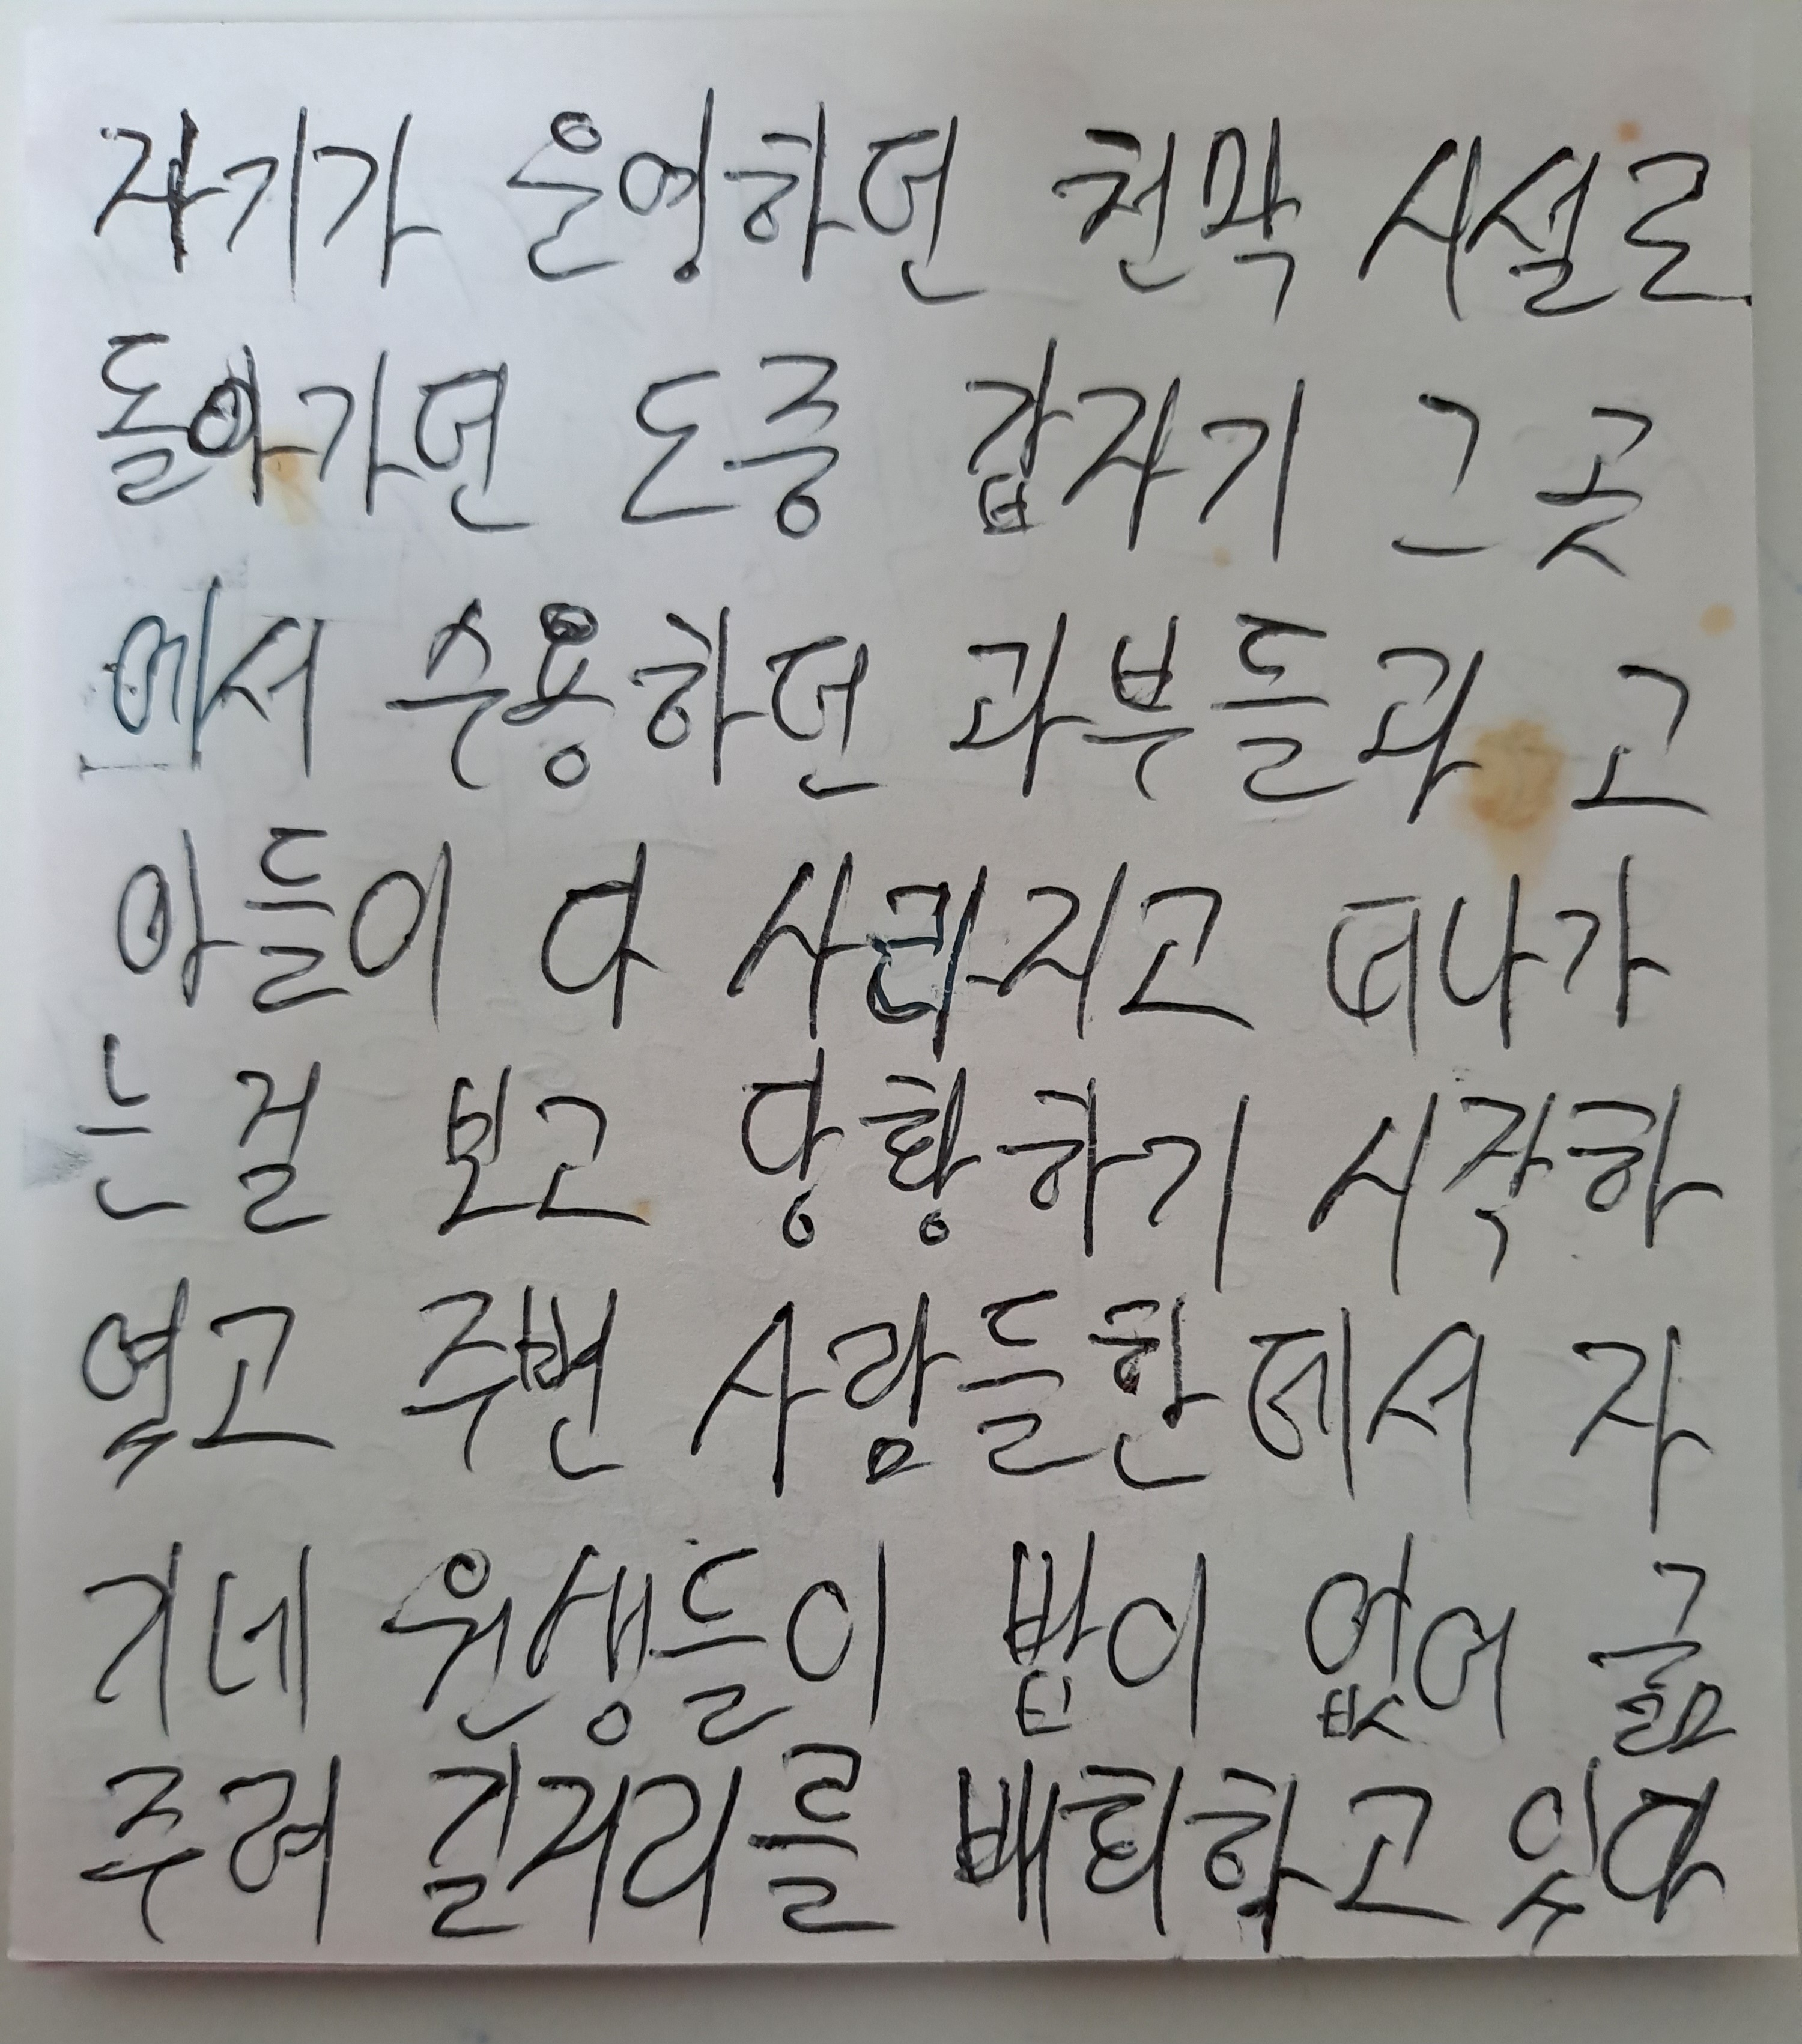 자기가 운영하던 천막 시설로
돌아가던 도중 갑자기 그곳
에서 수용하던 과부들과 고
아들이 다 사라지고 떠나가
는걸 보고 당황하기 시작하
였고 주변 사람들한테서 자
기네 원생들이 밥이 없어 굶
주려 길거리를 배회하고 있다